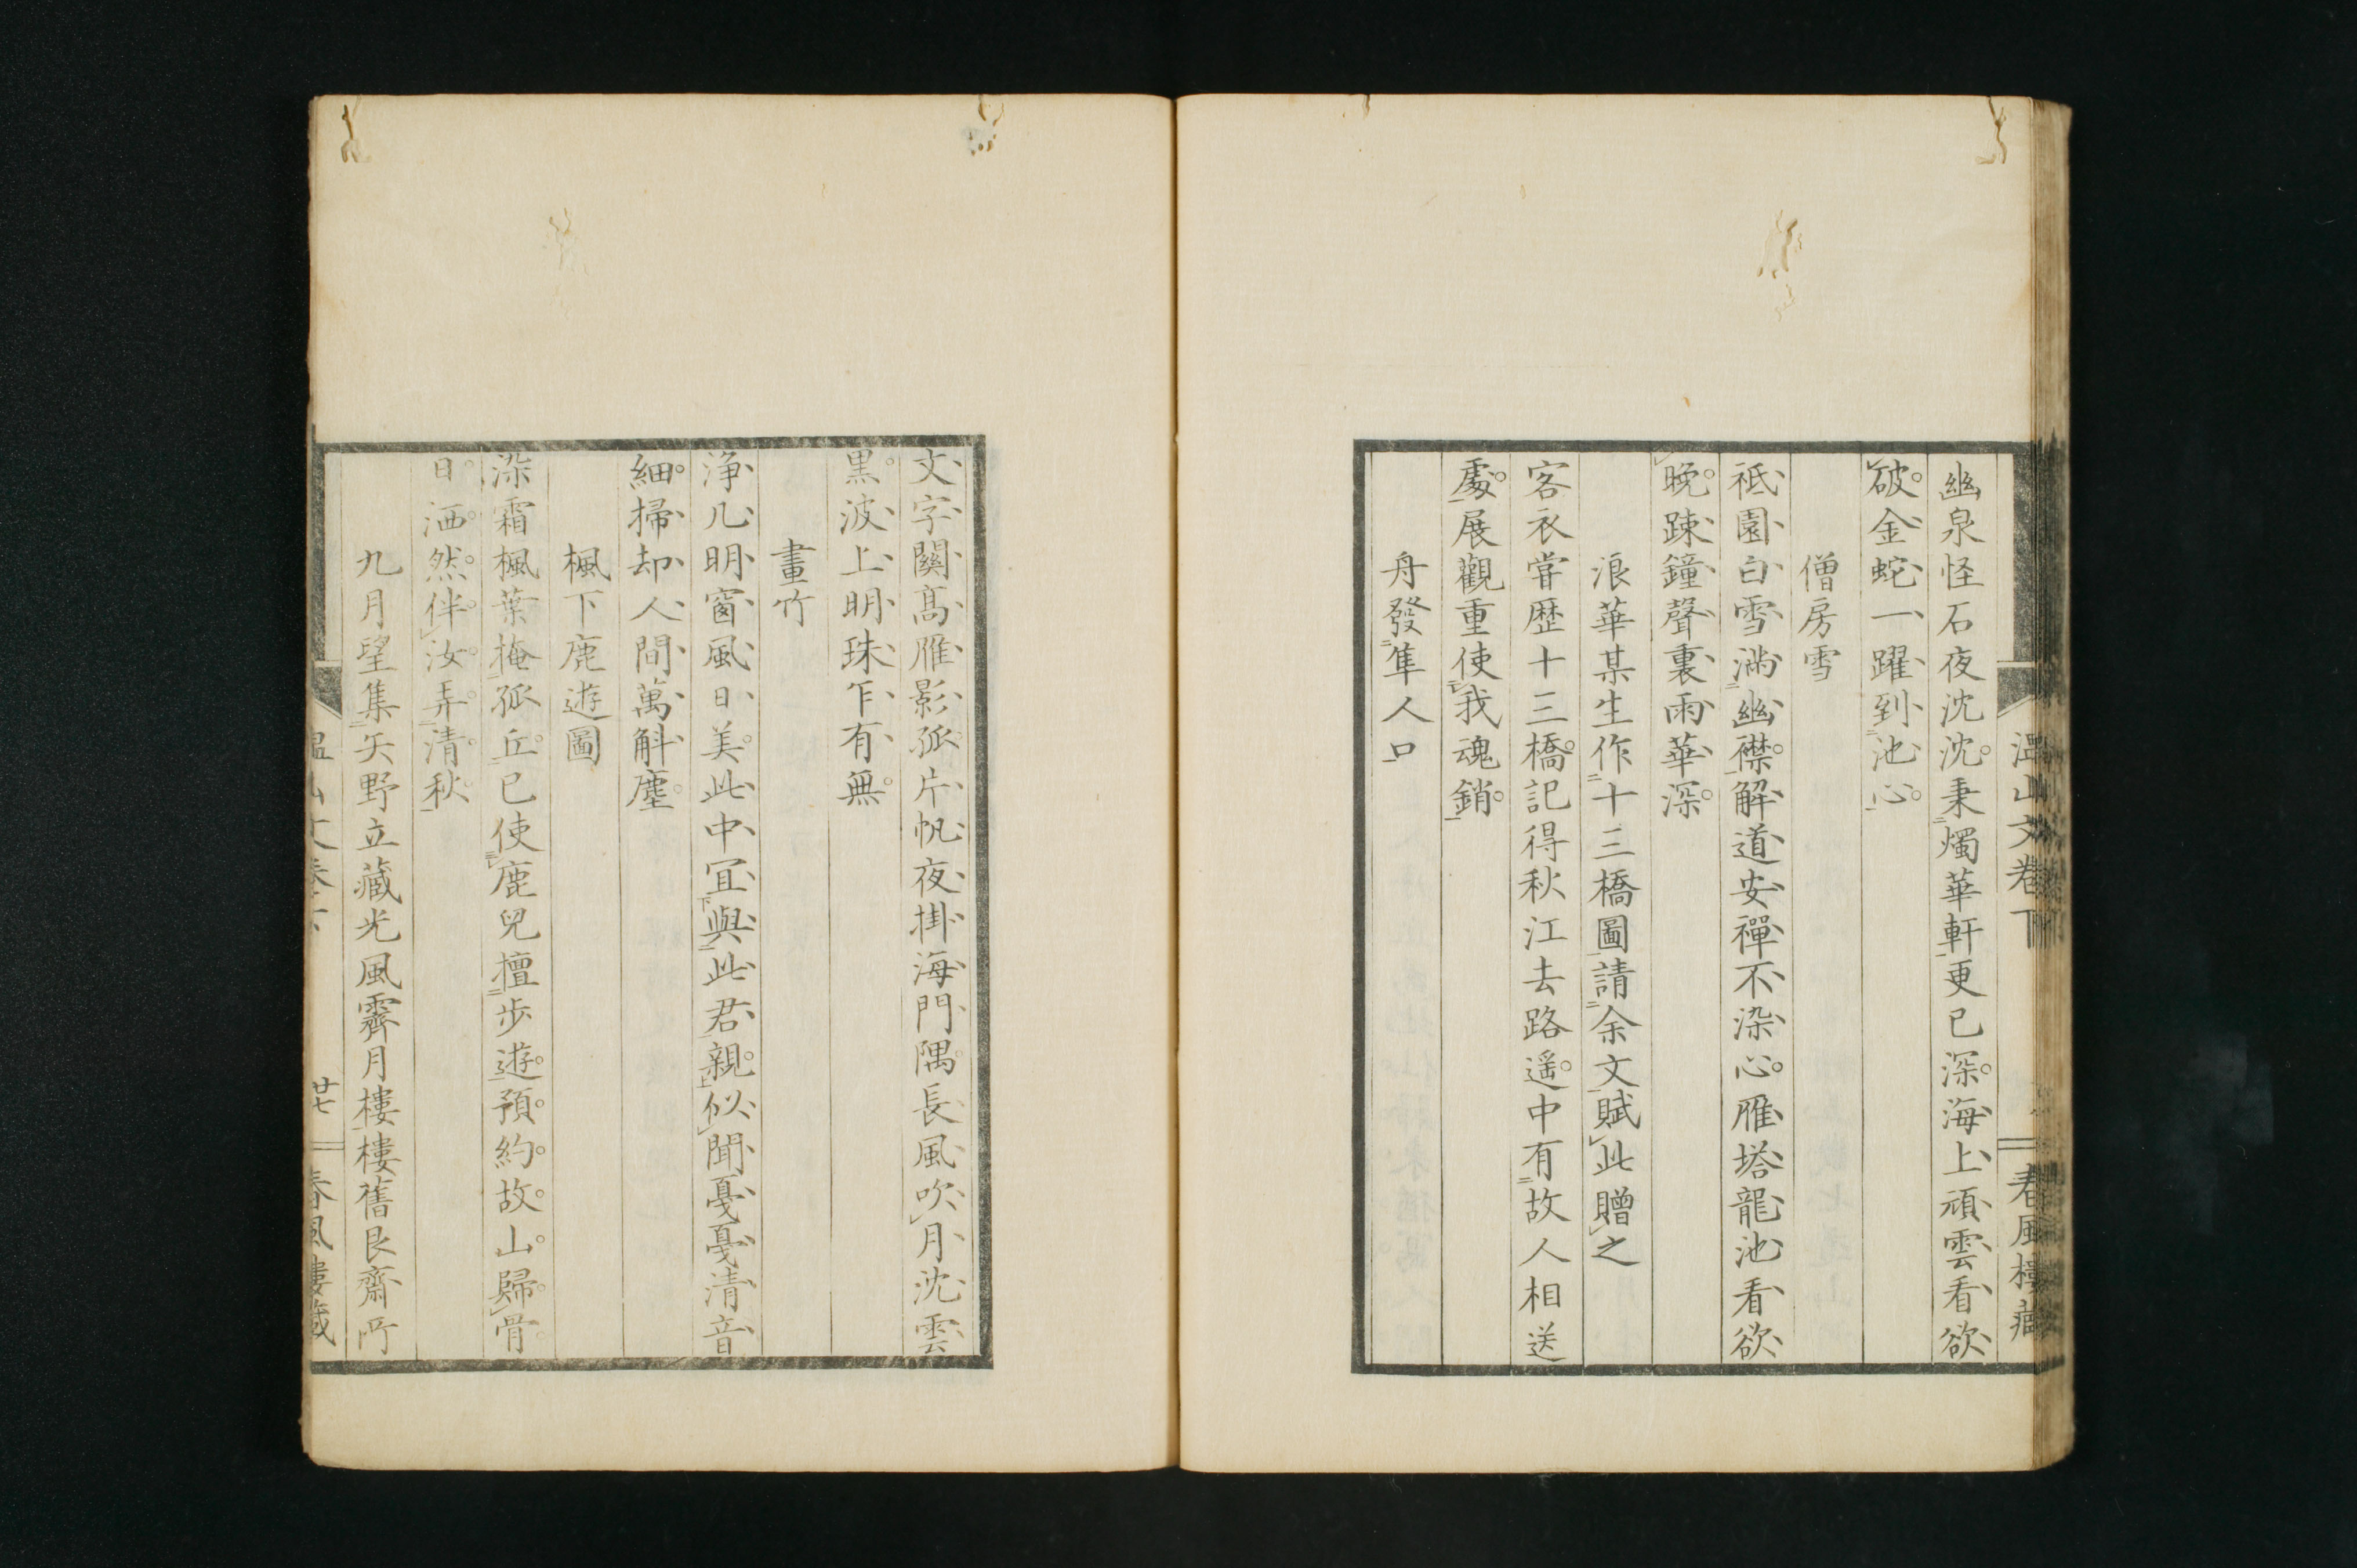 溫山文卷下
春風樓藏
幽泉怪石夜沈沈秉燭華軒更已深海上頑雲看欲
破金蛇一躍到池心
僧房雪
祗園白雪滿幽襟解道安禪不染心雁塔龍池看欲
晚踈鐘聲裏雨華深
浪華某生作十三橋圖請余文賦此贈之
客衣甞歴十三橋記得秋江去路遥中有故人相送
處展觀重使我魂銷
舟發隼人口
文字關髙雁影孤片帆夜掛海門隅長風吹月沈雲
黒波上明珠乍有無
畫竹
浄几明窗風日美此中冝與此君親似聞戛戛清音
細掃却人間萬斛塵
楓下鹿遊圖
染霜楓葉掩孤丘已使鹿兒擅步遊預約故山歸骨
日洒然伴汝弄清秋
九月望集矢野立藏光風霽月樓樓舊艮齋所
溫山文卷下
廿七
春風樓藏